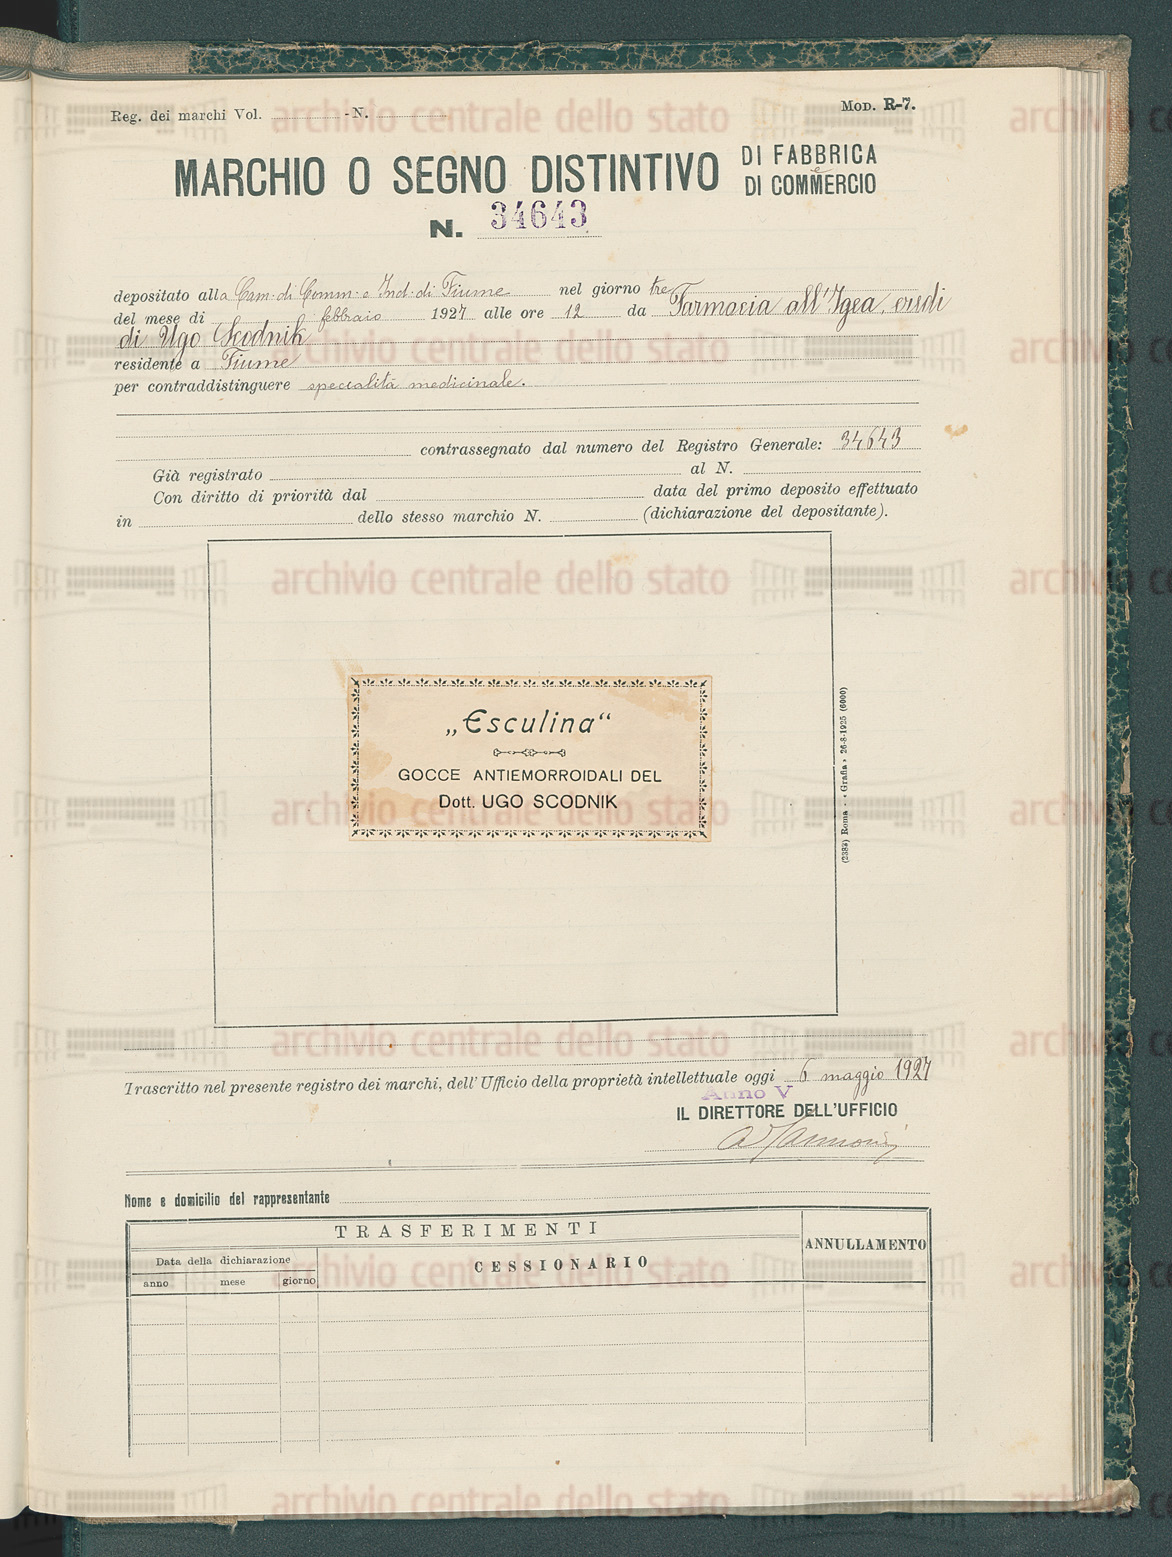 Reg. dei marchi Vol. - N.
MOD. R-7.
MARCHIO O SEGNO DISTINTIVO DI FABBRICA
e
DI COMMERCIO
N. 34643
depositato alla Cam. di Comm. e Ind. di Fiume nel giorno tre
del mese di febbraio 1927 alle ore 12 da Farmacia all'Igea, eredi
di Ugo Scodnik
residente a Fiume
per contraddistinguere specialità medicinale.
contrassegnato dal numero del Registro Generale: 34643
Già registrato al N.
Con diritto di priorità dal data del primo deposito effettuato
in dello stesso marchio N. (dichiarazione del depositante).
„Esculina“
GOCCE ANTIEMORROIDALI DEL
Dott. UGO SCODNIK
(2383) Roma - « Grafia » 26-8-1925 (6000)
Trascritto nel presente registro dei marchi, dell'Ufficio della proprietà intellettuale oggi 6 maggio 1927
Anno V
IL DIRETTORE DELL'UFFICIO
Nome e domicilio del rappresentante
TRASFERIMENTI
ANNULLAMENTO
Data della dichiarazione
CESSIONARIO
anno mese giorno
archivio centrale dello stato